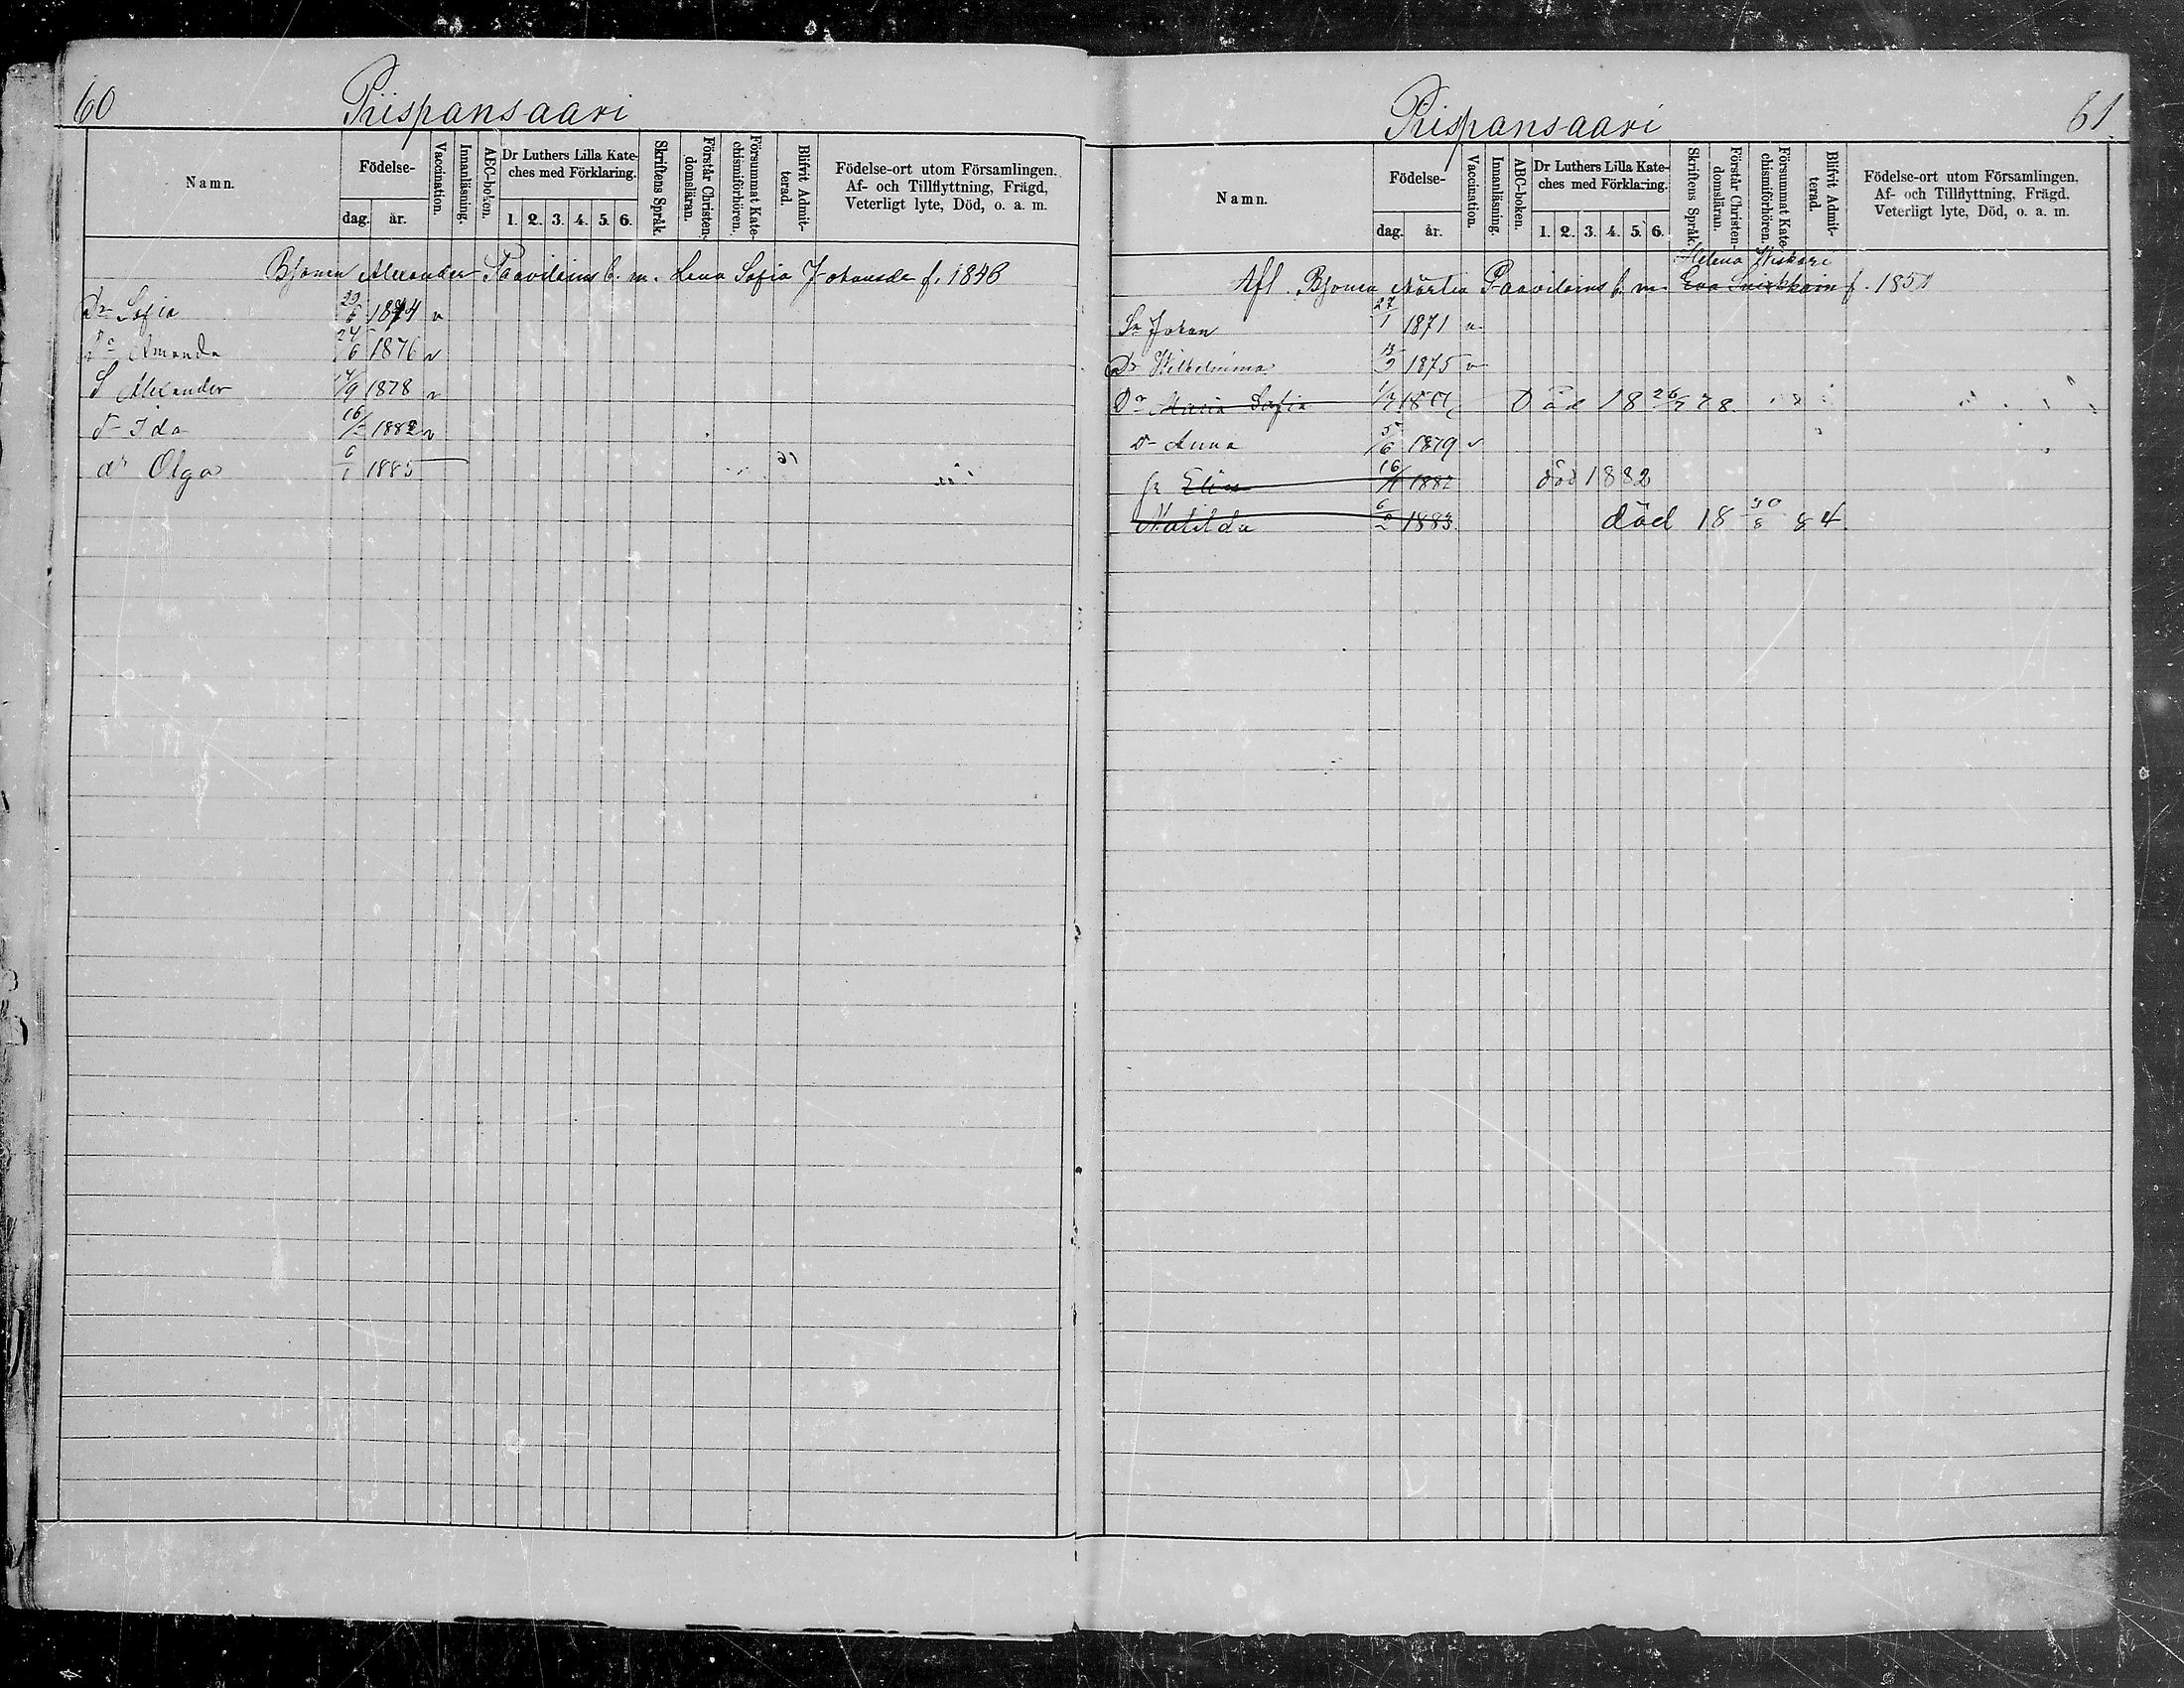 60
Piispansaari
Namn.
Födelse-
dag. år.
Vaccination.
Innanläsning.
ABC-boken.
Dr Luthers Lilla Kate-
ches med Förklaring.
1. 2. 3. 4. 5. 6.
Skriftens Språk.
Förstår Christen-
domsläran.
Försummat Kate-
chismiförhören.
Blifvit Admit-
terad.
Födelse-ort utom Församlingen.
Af- och Tillflyttning, Frägd,
Veterligt lyte, Död, o. a. m.
Alexander Paavilains b. m. Lena Sofia f. 1846
Dr Sofia 1874 v
Dr Amanda 24/6 1876 v
S Alexander 1878 v
dr Ida 1882 v
dr Olga 6/1 1885
Piispansaari
61
Namn.
Födelse-
dag. år.
Vaccination.
Innanläsning.
ABC-boken.
Dr Luthers Lilla Kate-
ches med Förklaring.
1. 2. 3. 4. 5. 6.
Skriftens Språk.
Förstår Christen-
domsläran.
Försummat Kate-
chismiförhören.
Blifvit Admit-
terad.
Födelse-ort utom Församlingen,
Af- och Tillflyttning, Frägd,
Veterligt lyte, Död, o. a. m.
Helena Wiskari
Afl. Paavilains b. m. Eva f. 185
Sn Johan 27/1 1871 v
Dr Wilhelmina 1875 v
Dr Maria Sofia Död 18 26/7 78
dr Anna 5/6 1879 v
Elias 1882 död 1882
Matilda 6/2 1883 död 18 30/8 84